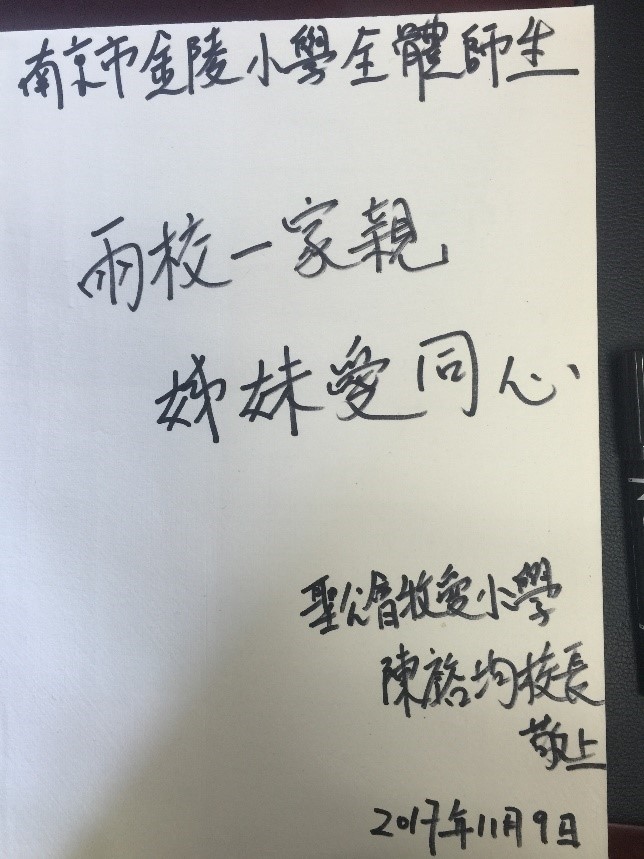 南京市金陵小學全體師生
兩校一家親
姊妹愛同心
聖公會牧愛小學
陳裕均校長
敬上
2017年11月9日